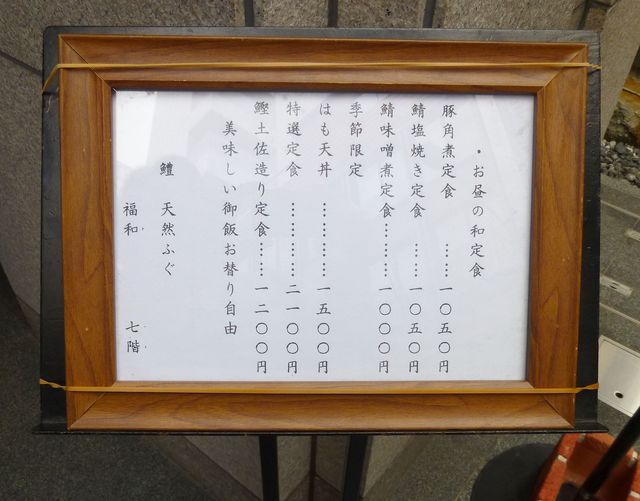 ・お昼の和定食
豚角煮定食………一〇五〇円
鯖塩焼き定食………一〇五〇円
鯖味噌煮定食………一〇〇〇円
季節限定
はも天丼…………一五〇〇円
特選定食…………二一〇〇円
鰹土佐造り定食………一二〇〇円
美味しい御飯お替り自由
鱧 天然ふぐ
福和 七階